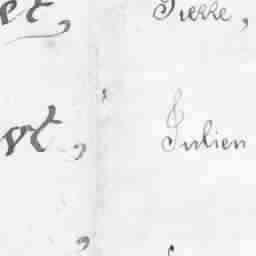 et, Pierre,
vt, Julien